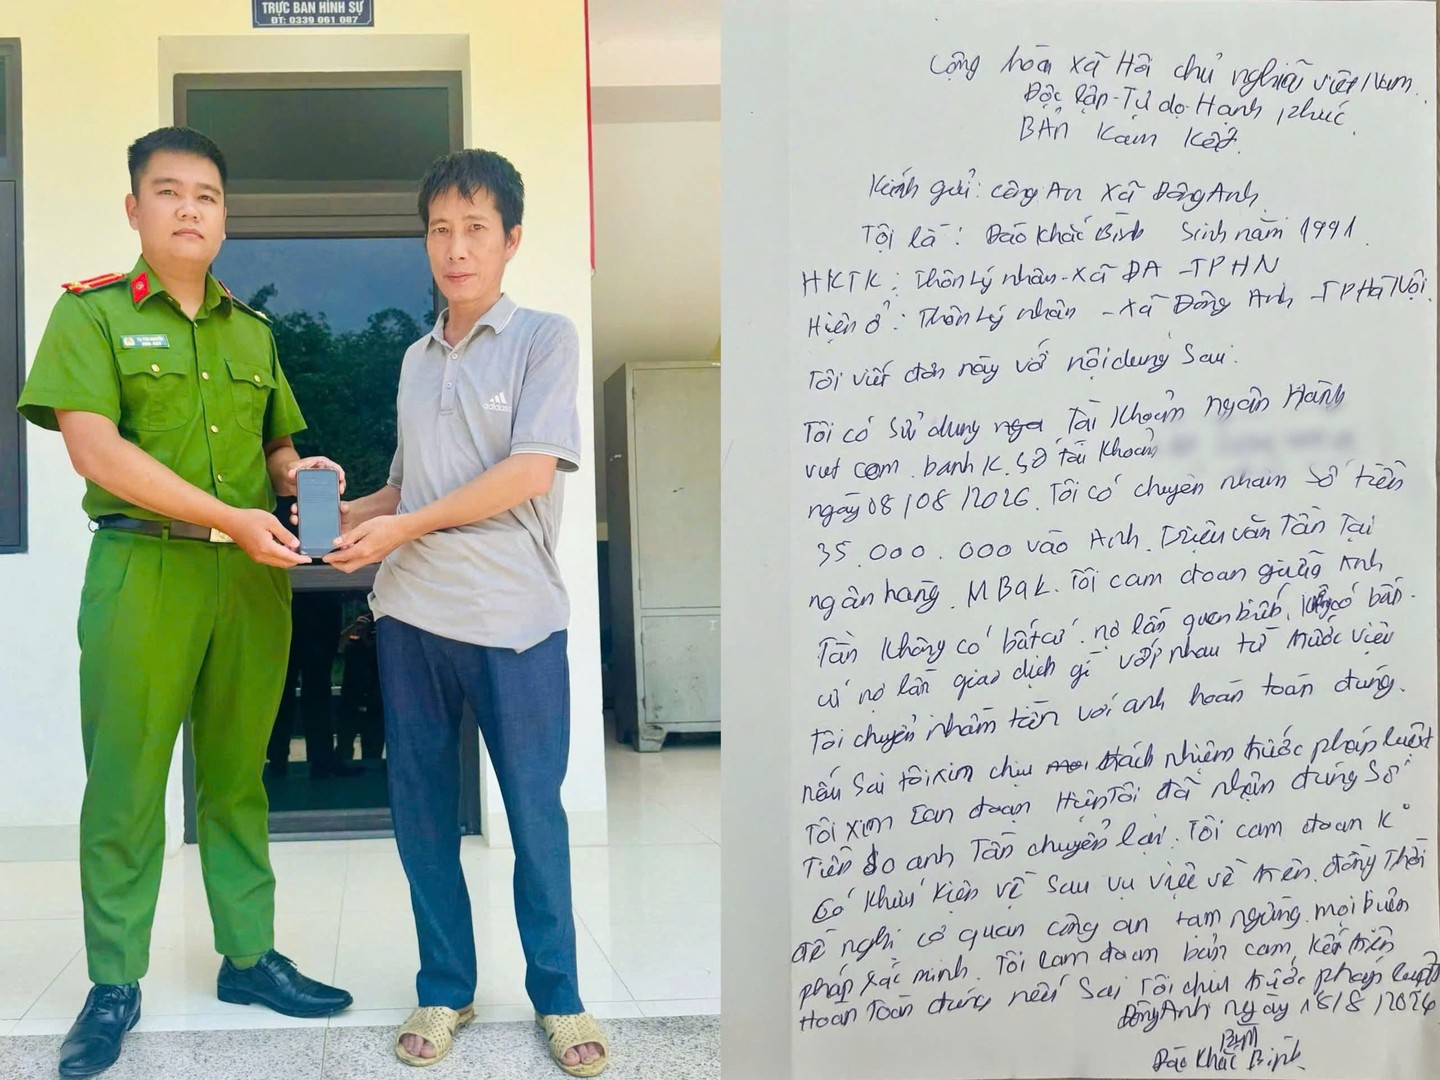 TRỰC BAN HÌNH SỰ
ĐT: 0339 061 087
adidas
Cộng hòa Xã Hôi chủ nghiã việt Nam.
Độc lập - Tự do - Hạnh phúc.
BẢN Kam Kết.
Kính gửi: công An Xã Đông Anh.
Tôi là: Đào Khắc Bình Sinh năm 1991.
HKTK: Thôn Lý nhân - Xã ĐA - TPHN
Hiện ở: Thôn Lý nhân - Xã Đông Anh - TP Hà Nội.
Tôi viết đơn này với nội dung Sau:
Tôi có Sử dung Tài Khoản ngân Hành
com banh K. Số tài Khoản
ngày 08/08/2026. Tôi có chuyển nhầm Số tiền
35.000.000 vào Anh. Triệu văn Tần Tại
ngân hàng. MBaK. Tôi cam đoan giữa Anh
Tần Không có bất cứ nợ lần quen biết, có bất.
cứ nợ lần giao dịch gì với nhau từ trước việc
Tôi chuyển nhầm tiền với anh hoàn toàn đúng.
nếu Sai tôi xin chịu trách nhiệm trước pháp luật
Tôi xin đoan Hiện Tôi đã nhận đúng Số
Tiền do anh Tần chuyển lại. Tôi cam đoan K
có Khiếu Kiện về Sau vụ việc về trên. đồng Thời
đề nghị cơ quan công an tạm ngừng mọi
pháp xác minh. Tôi cam đoan bản cam Kết trên
Hoàn Toàn đúng nếu Sai Tôi chịu trước pháp luật
Đông Anh ngày 18/8/2026
Đào Khắc Bình